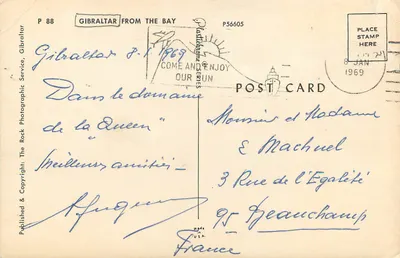 P 88 GIBRALTAR FROM THE BAY
P56605
PLACE
STAMP
HERE
Gibraltar 8-1 1969
COME AND ENJOY
OUR SUN
8 JAN
1969
POST CARD
Dans le domaine
de la "Queen"
Meilleures amitiés -
Monsieur et Madame
E Machuel
3 Rue de l'Egalité
95 Beauchamp
France
Published & Copyright: The Rock Photographic Service, Gibraltar